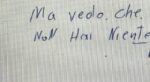 Ma vedo. che
NoN Hai Niente